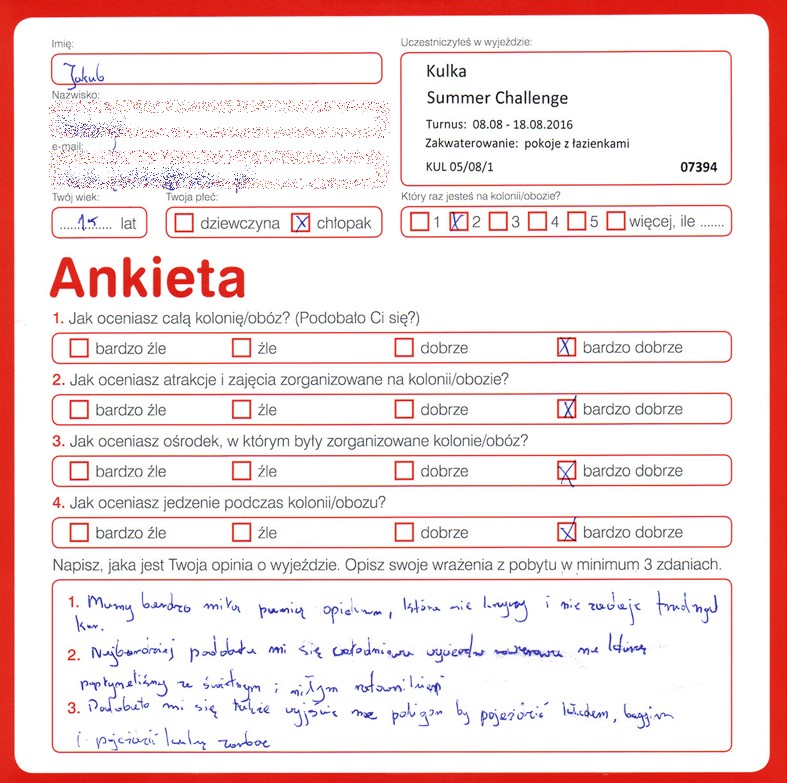 Imię:
Jakub
Nazwisko:
e-mail:
Uczestniczyłeś w wyjeździe:
Kulka
Summer Challenge
Turnus: 08.08 - 18.08.2016
Zakwaterowanie: pokoje z łazienkami
KUL 05/08/1 07394
Twój wiek: Twoja płeć: Który raz jesteś na kolonii/obozie?
15 lat dziewczyna X chłopak 1 X 2 3 4 5 więcej, ile .......
Ankieta
1. Jak oceniasz całą kolonię/obóz? (Podobało Ci się?)
bardzo źle źle dobrze X bardzo dobrze
2. Jak oceniasz atrakcje i zajęcia zorganizowane na kolonii/obozie?
bardzo źle źle dobrze X bardzo dobrze
3. Jak oceniasz ośrodek, w którym były zorganizowane kolonie/obóz?
bardzo źle źle dobrze X bardzo dobrze
4. Jak oceniasz jedzenie podczas kolonii/obozu?
bardzo źle źle dobrze X bardzo dobrze
Napisz, jaka jest Twoja opinia o wyjeździe. Opisz swoje wrażenia z pobytu w minimum 3 zdaniach.
1. Mamy bardzo miłą panią opiekun, która nie krzyczy i nie zadaje trudnych
kar.
2. Najbardziej podobała mi się całodniowa na którą
popłynęliśmy ze świetnym i miłym
3. Podobało mi się także wyjście na poligon by pojeździć kładem, buggim
i pojeździć kulą zorbac